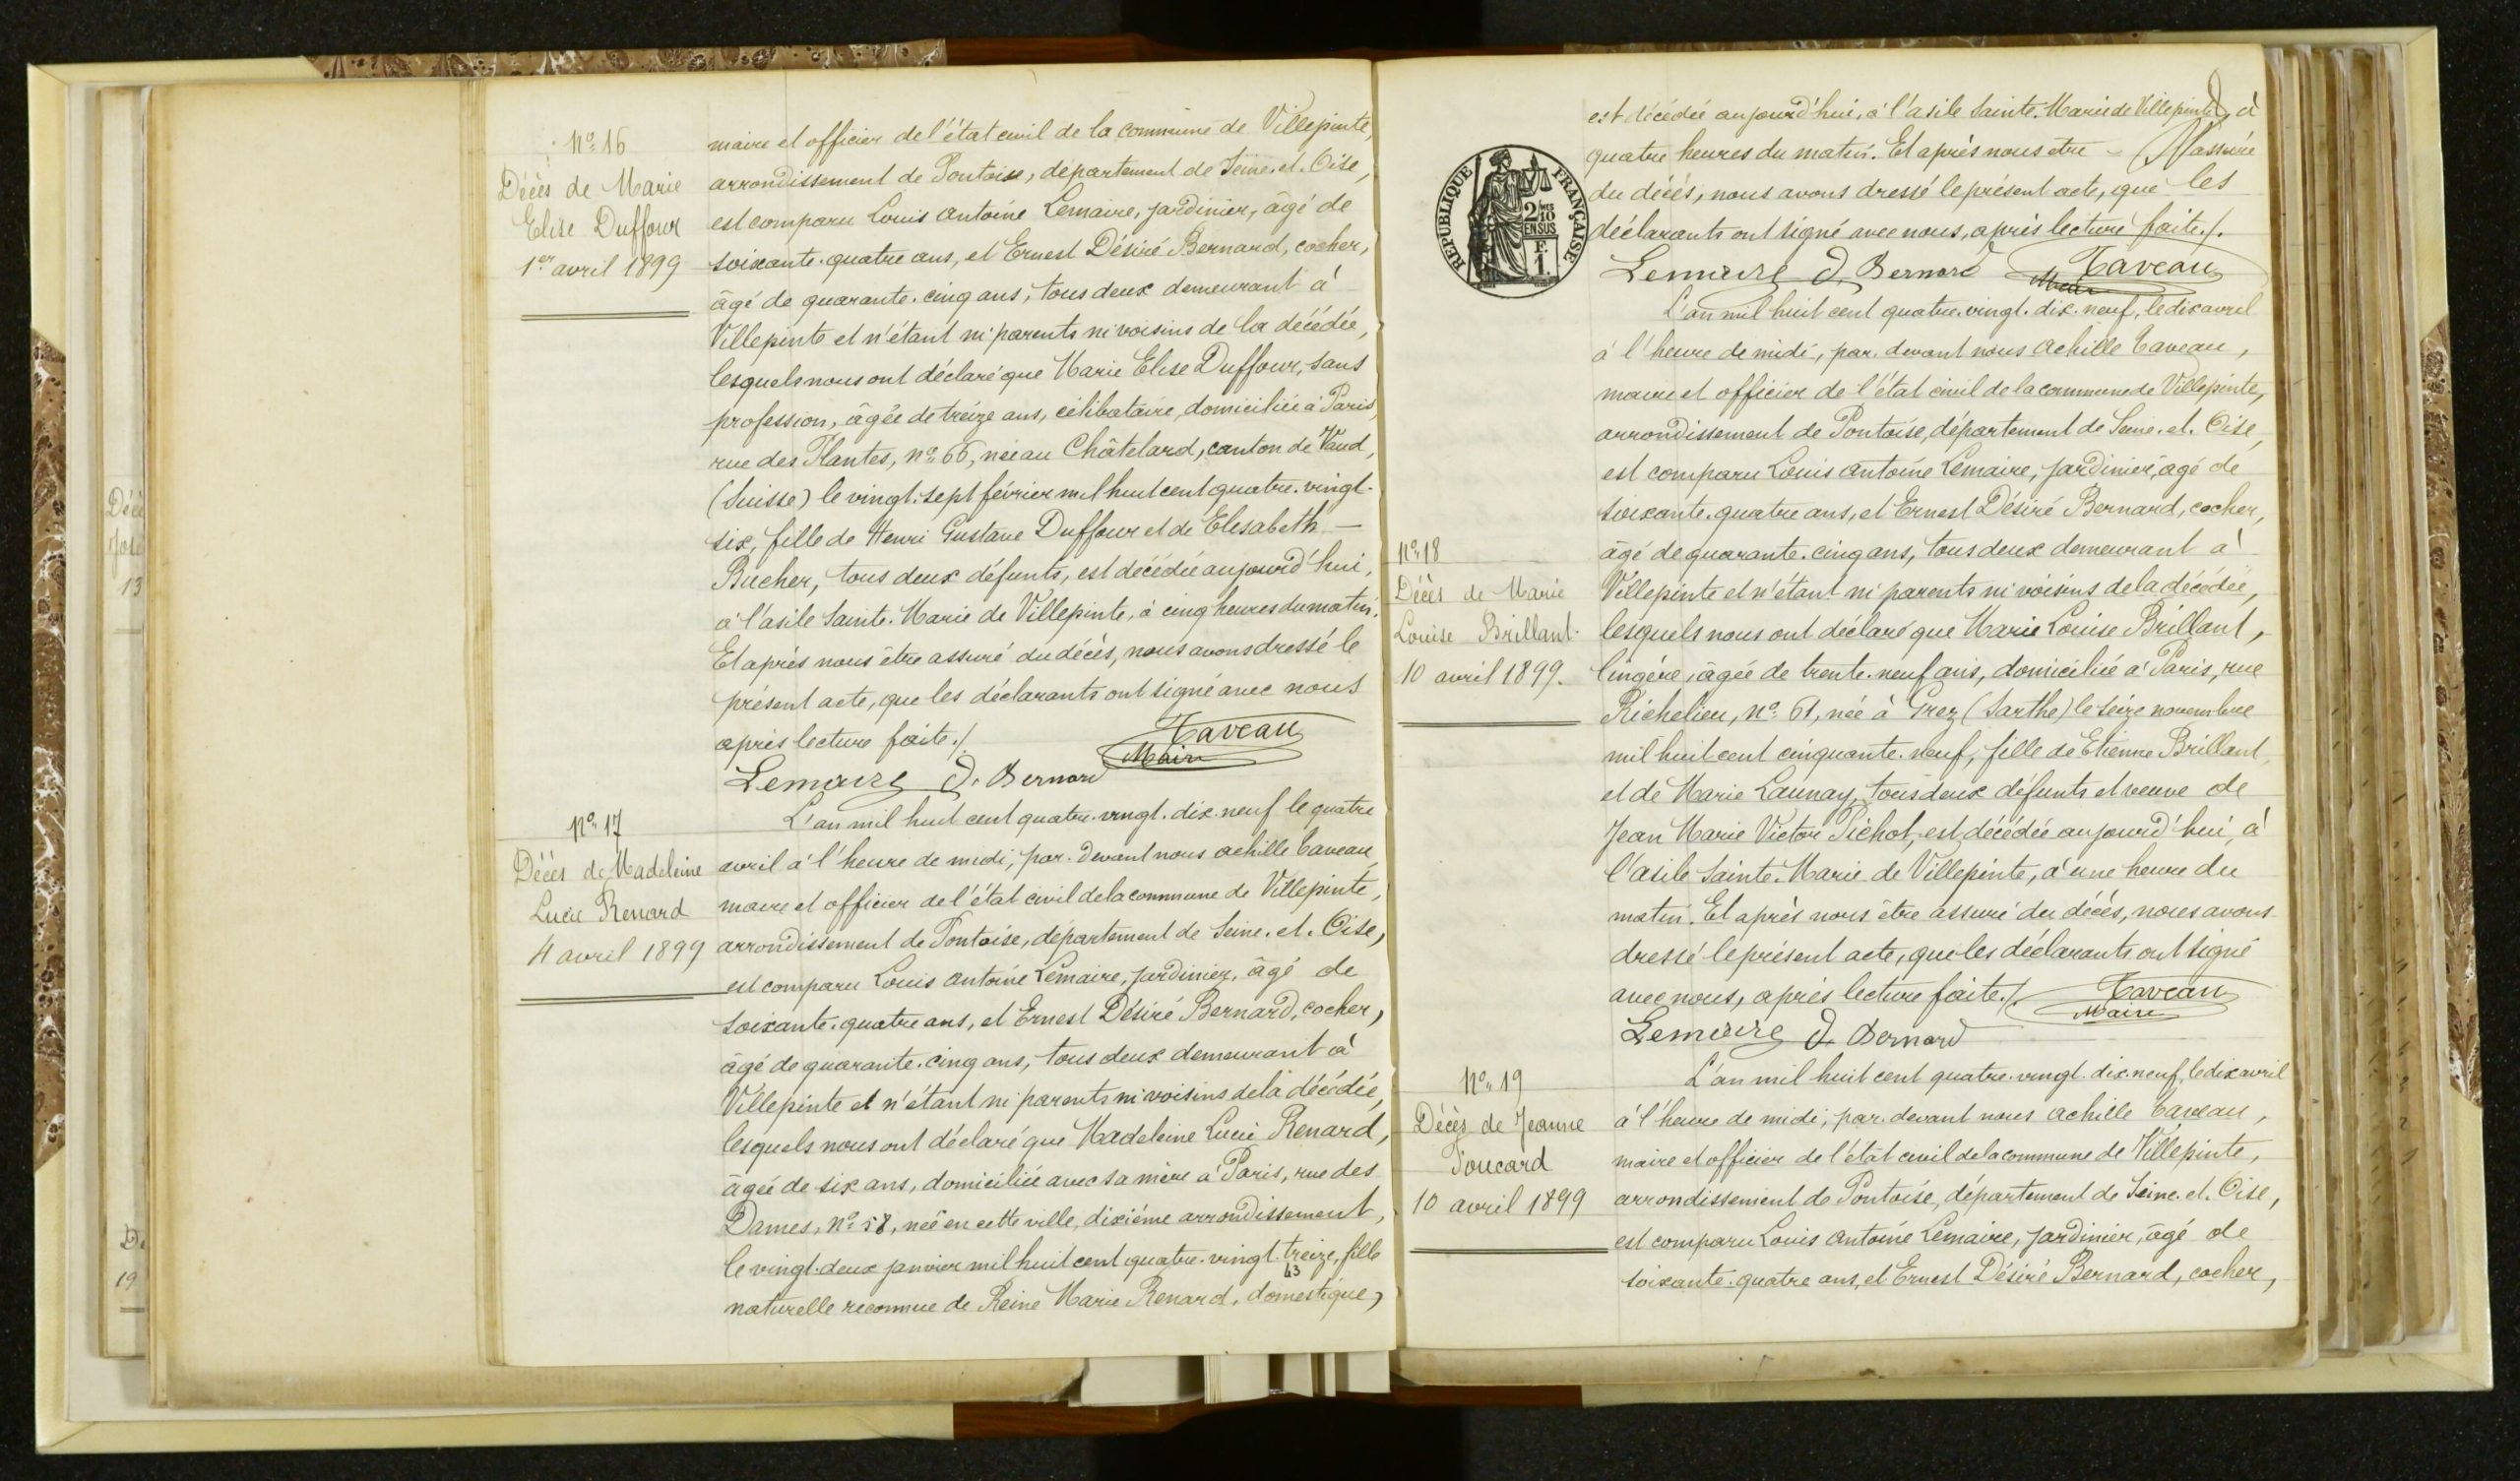 Nº 16
Décès de Marie
Elise Duffour
1er avril 1899
maire et officier de l'état civil de la commune de Villepinte,
arrondissement de Pontoise, département de Seine-et-Oise,
est comparu Louis Antoine Lemaire, jardinier, âgé de
soixante-quatre ans, et Ernest Désiré Bernard, cocher,
âgé de quarante-cinq ans, tous deux demeurant à
Villepinte et n'étant ni parents ni voisins de la décédée,
lesquels nous ont déclaré que Marie Elise Duffour, sans
profession, âgée de treize ans, célibataire, domiciliée à Paris,
rue des Plantes, nº 66, née au Châtelard, canton de Vaud,
(Suisse) le vingt-sept février mil huit cent quatre-vingt-
six, fille de Henri Gustave Duffour et de Elisabeth —
Bucher, tous deux défunts, est décédée aujourd'hui,
à l'asile Sainte-Marie de Villepinte, à cinq heures du matin.
Et après nous être assuré du décès, nous avons dressé le
présent acte, que les déclarants ont signé avec nous
après lecture faite./.
Taveau
Maire
Lemaire D. Bernard
Nº 17
Décès de Madeleine
Lucie Renard
4 avril 1899
L'an mil huit cent quatre-vingt-dix-neuf le quatre
avril à l'heure de midi, par-devant nous Achille Taveau,
maire et officier de l'état civil de la commune de Villepinte,
arrondissement de Pontoise, département de Seine-et-Oise,
est comparu Louis Antoine Lemaire, jardinier, âgé de
soixante-quatre ans, et Ernest Désiré Bernard, cocher,
âgé de quarante-cinq ans, tous deux demeurant à
Villepinte et n'étant ni parents ni voisins de la décédée,
lesquels nous ont déclaré que Madeleine Lucie Renard,
âgée de six ans, domiciliée avec sa mère à Paris, rue des
Dames, nº 58, née en cette ville, dixième arrondissement,
le vingt-deux janvier mil huit cent quatre-vingt-treize, fille
naturelle reconnue de Reine Marie Renard, domestique,
est décédée aujourd'hui, à l'asile Sainte-Marie de Villepinte, à
quatre heures du matin. Et après nous être — assuré
du décès, nous avons dressé le présent acte, que les
déclarants ont signé avec nous, après lecture faite./.
RÉPUBLIQUE FRANÇAISE
2/10 EN SUS
F.
1.
Lemaire D. Bernard Taveau
Maire
Nº 18
Décès de Marie
Louise Brillant
10 avril 1899.
L'an mil huit cent quatre-vingt-dix-neuf, le dix avril
à l'heure de midi, par-devant nous Achille Taveau,
maire et officier de l'état civil de la commune de Villepinte,
arrondissement de Pontoise, département de Seine-et-Oise,
est comparu Louis Antoine Lemaire, jardinier, âgé de
soixante-quatre ans, et Ernest Désiré Bernard, cocher,
âgé de quarante-cinq ans, tous deux demeurant à
Villepinte et n'étant ni parents ni voisins de la décédée,
lesquels nous ont déclaré que Marie Louise Brillant,
lingère, âgée de trente-neuf ans, domiciliée à Paris, rue
Richelieu, nº 61, née à Grez (Sarthe) le seize novembre
mil huit cent cinquante-neuf, fille de Etienne Brillant
et de Marie Launay, tous deux défunts et veuve de
Jean Marie Victor Pichot, est décédée aujourd'hui, à
l'asile Sainte-Marie de Villepinte, à une heure du
matin. Et après nous être assuré du décès, nous avons
dressé le présent acte, que les déclarants ont signé
avec nous, après lecture faite./.
Taveau
Maire
Lemaire D. Bernard
Nº 19
Décès de Jeanne
Foucard
10 avril 1899
L'an mil huit cent quatre-vingt-dix-neuf, le dix avril
à l'heure de midi, par-devant nous Achille Taveau,
maire et officier de l'état civil de la commune de Villepinte,
arrondissement de Pontoise, département de Seine-et-Oise,
est comparu Louis Antoine Lemaire, jardinier, âgé de
soixante-quatre ans, et Ernest Désiré Bernard, cocher,